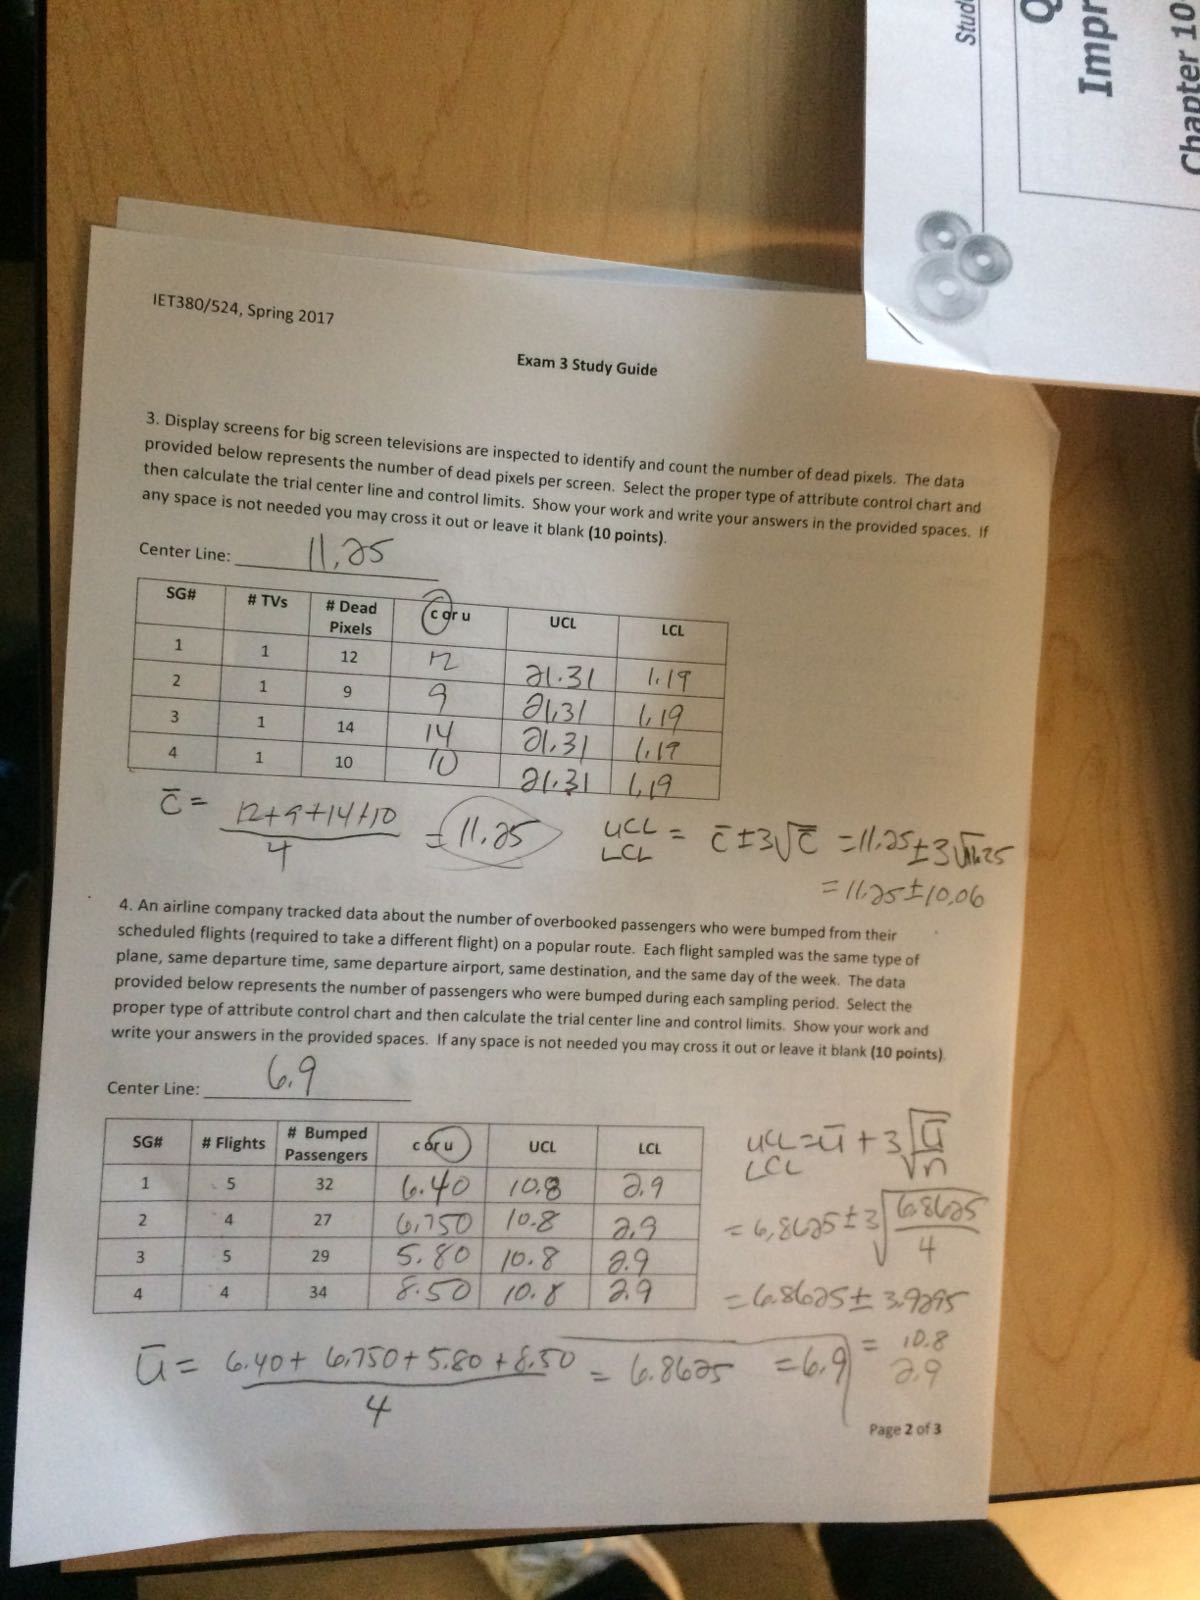 Stud
Q
Impr
Chapter 10
IET380/524, Spring 2017
Exam 3 Study Guide
3. Display screens for big screen televisions are inspected to identify and count the number of dead pixels. The data
provided below represents the number of dead pixels per screen. Select the proper type of attribute control chart and
then calculate the trial center line and control limits. Show your work and write your answers in the provided spaces. If
any space is not needed you may cross it out or leave it blank (10 points).
Center Line: 11.25
SG# # TVs # Dead Pixels c or u UCL LCL
1 1 12 12 21.31 1.19
2 1 9 9 21.31 1.19
3 1 14 14 21.31 1.19
4 1 10 10 21.31 1.19
c̄ = 12+9+14+10 / 4 = 11.25
UCL LCL = c̄ ± 3√c̄ = 11.25 ± 3√11.25
= 11.25 ± 10.06
4. An airline company tracked data about the number of overbooked passengers who were bumped from their
scheduled flights (required to take a different flight) on a popular route. Each flight sampled was the same type of
plane, same departure time, same departure airport, same destination, and the same day of the week. The data
provided below represents the number of passengers who were bumped during each sampling period. Select the
proper type of attribute control chart and then calculate the trial center line and control limits. Show your work and
write your answers in the provided spaces. If any space is not needed you may cross it out or leave it blank (10 points).
Center Line: 6.9
SG# # Flights # Bumped Passengers c or u UCL LCL
1 5 32 6.40 10.8 2.9
2 4 27 6.750 10.8 2.9
3 5 29 5.80 10.8 2.9
4 4 34 8.50 10.8 2.9
UCL LCL = ū + 3√ū/n
= 6.8625 ± 3√6.8625/4
= 6.8625 ± 3.9295
= 10.8
2.9
ū = 6.40 + 6.750 + 5.80 + 8.50 / 4 = 6.8625 = 6.9
Page 2 of 3